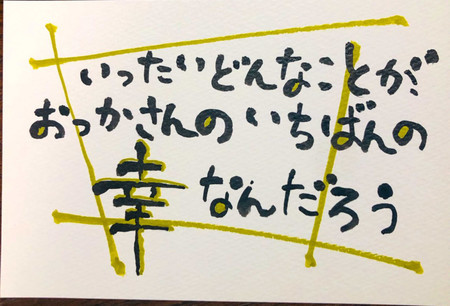 いったいどんなことが
おっかさんのいちばんの
幸なんだろう